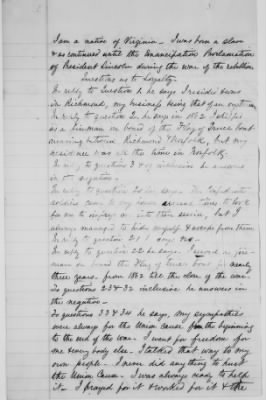 I am a native of Virginia. I was born a slave
& so continued until the Emancipation Proclamation
of President Lincoln during the war of the rebellion
Questions as to Loyalty.
In reply to Question 1 he says I resided
in Richmond, my business being that of an
In reply to question 2 he says in 1862 I
as a fireman on board of the Flag of Truce boat
running between Richmond & Norfolk, but my
residence was at the time in Norfolk.
In reply to question 3 he answers
in the negative.
In reply to question 20 he says The Confederate
came to my house several times to look
for me to impress me into their service, but I
always managed to hide myself & escape from them
In reply to question 21 I say no.
In reply to question 22 he says. I served as
on board the Flag of truce boat
three years. from 1862 till the close of the war.
To questions 23 & 32 inclusive he answers in
the negative.
To questions 33 & 34 he says, my sympathies
were always for the Union cause from the beginning
to the end of the war. I went for freedom for
me & every body else. I talked that way to my
own people. I never did any thing to hurt
the Union Cause. I was always ready to help
it. I prayed for it & worked for it & the